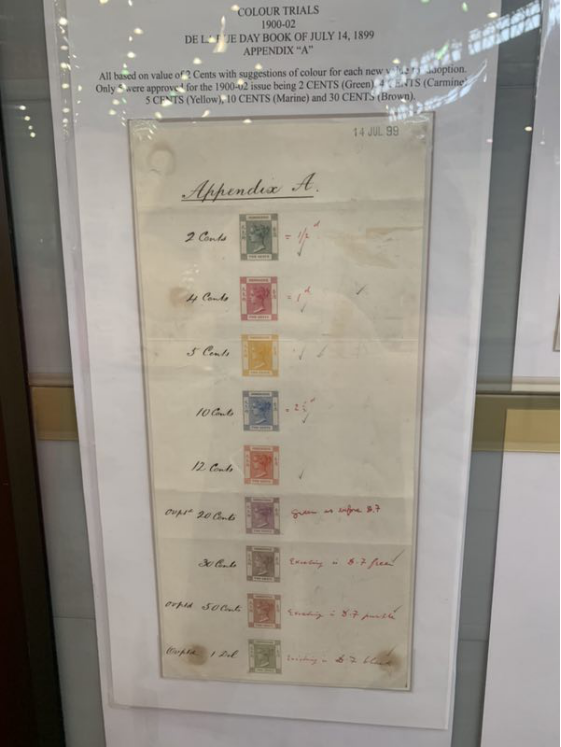 COLOUR TRIALS
1900-02
DE LA RUE DAY BOOK OF JULY 14, 1899
APPENDIX "A"
All based on value of 2 Cents with suggestions of colour for each new value adoption.
Only 5 were approved for the 1900-02 issue being 2 CENTS (Green), 4 CENTS (Carmine),
5 CENTS (Yellow), 10 CENTS (Marine) and 30 CENTS (Brown).
14 JUL 99
Appendix A.
2 Cents = 1/2 d
4 Cents = 1 d
5 Cents
10 Cents = 2½ d
12 Cents
20 Cents green as before
30 Cents Existing is green
50 Cents Existing is purple
1 Dol existing